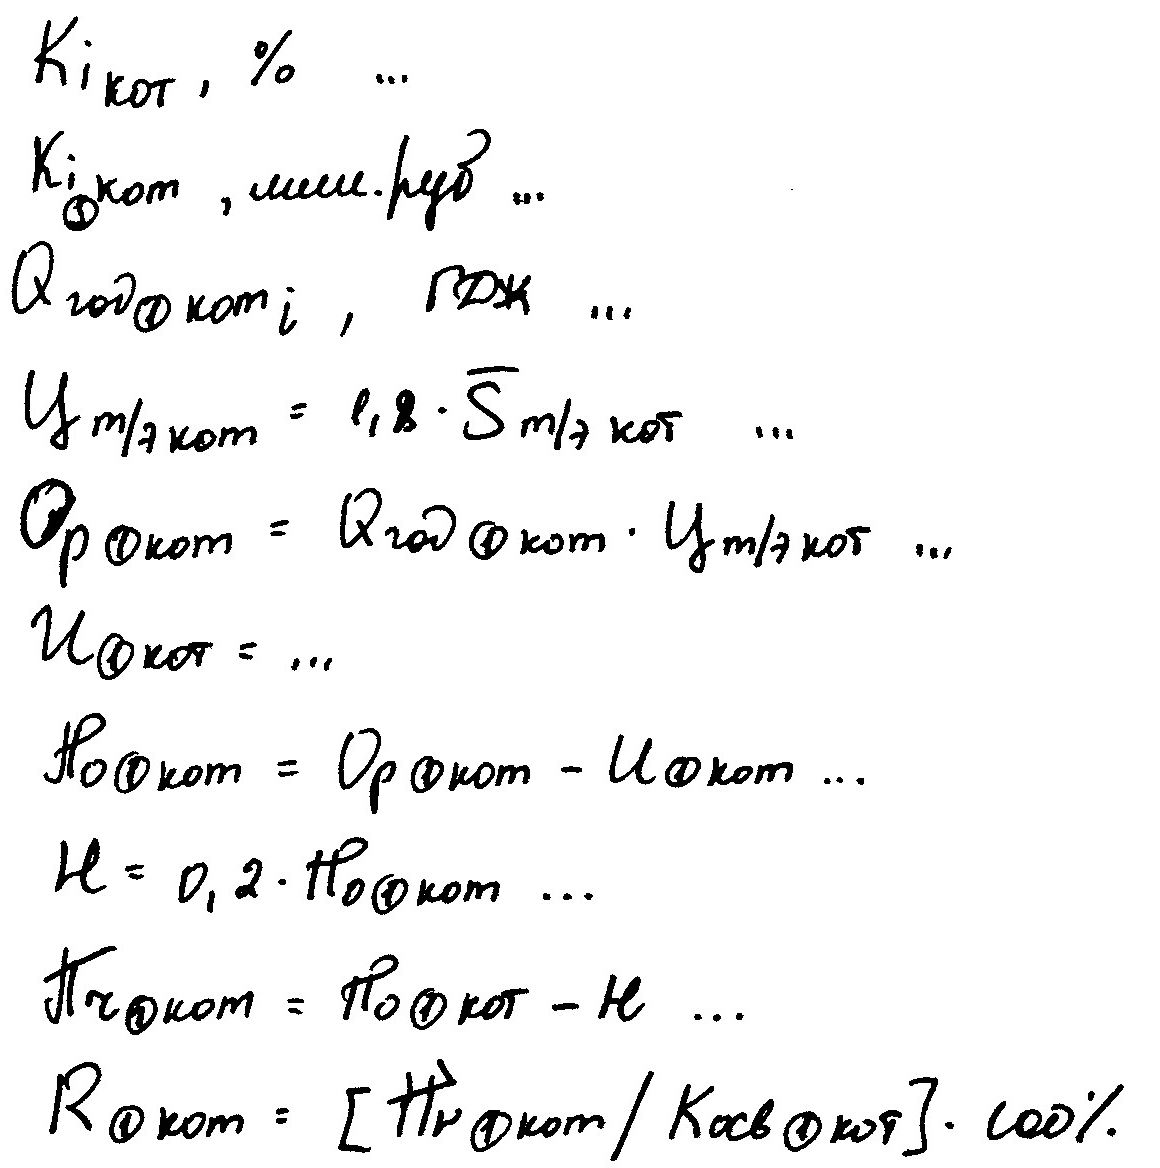 Кi кот, % ...
Кi① кот, млн.руб ...
Qгод① котi, ГДж ...
Цт/э кот = 1,8 · S̅т/э кот ...
Ор① кот = Qгод① кот · Цт/э кот ...
И① кот = ...
По① кот = Ор① кот − И① кот ...
Н = 0,2 · По① кот ...
Пч① кот = По① кот − Н ...
R① кот = [Пч① кот / Косв① кот] · 100%